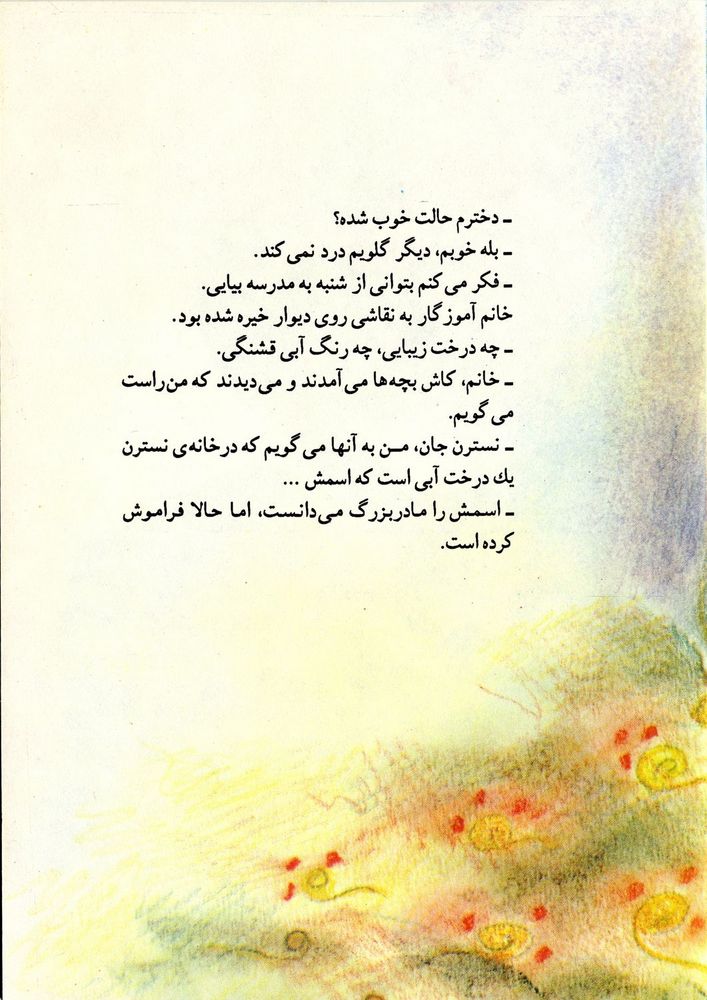 ـ دخترم حالت خوب شده؟
ـ بله خوبم، دیگر گلویم درد نمی‌کند.
ـ فکر می‌کنم بتوانی از شنبه به مدرسه بیایی.
خانم آموزگار به نقاشی روی دیوار خیره شده بود.
ـ چه درخت زیبایی، چه رنگ آبی قشنگی.
ـ خانم، کاش بچه‌ها می‌آمدند و می‌دیدند که من راست
می‌گویم.
ـ نسترن جان، من به آنها می‌گویم که درخانه‌ی نسترن
یك درخت آبی است که اسمش ...
ـ اسمش را مادربزرگ می‌دانست، اما حالا فراموش
کرده است.